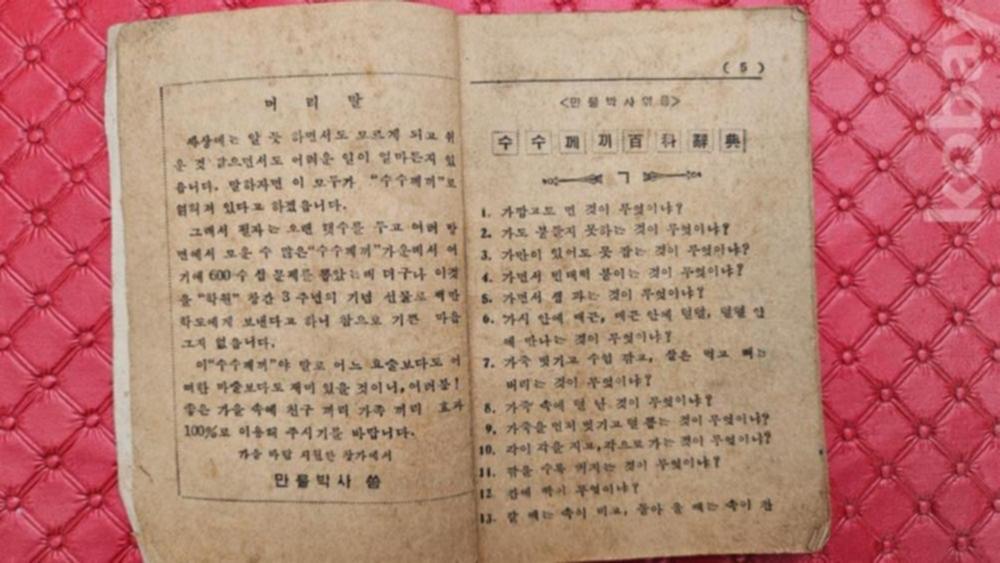 머 리 말
세상에는 알 듯 하면서도 모르게 되고 쉬
운 것 같으면서도 어려운 일이 얼마든지 있
읍니다. 말하자면 이 모두가 “수수께끼”로
얽혀져 있다고 하겠읍니다.
그래서 필자는 오랜 햇수를 두고 여러 방
면에서 모은 수 많은“수수께끼”가운데서 여
기에 600수 십 문제를 뽑았는데 더구나 이것
을 “학원” 창간 3 주년의 기념 선물로 백만
학도에게 보낸다고 하니 참으로 기쁜 마음
그지 없읍니다.
이“수수께끼”야 말로 어느 요술보다도 어
떠한 마술보다도 재미 있을 것이니, 여러분!
좋은 가을 속에 친구 끼리 가족 끼리 효과
100%로 이용해 주시기를 바랍니다.
가을 바람 시원한 창가에서
만물박사 씀
( 5 )
<만물박사엮음>
수수께끼百科辭典
ㄱ
1. 가깝고도 먼 것이 무엇이냐?
2. 가도 붙들지 못하는 것이 무엇이냐?
3. 가만이 있어도 못 잡는 것이 무엇이냐?
4. 가면서 빈대떡 붙이는 것이 무엇이냐?
5. 가면서 샘 파는 것이 무엇이냐?
6. 가시 안에 매끈, 매끈 안에 떨떨, 떨떨 안
에 만나는 것이 무엇이냐?
7. 가죽 벗기고 수염 깎고, 살은 먹고 뼈는
버리는 것이 무엇이냐?
8. 가죽 속에 털 난 것이 무엇이냐?
9. 가죽을 먼저 벗기고 털 뽑는 것이 무엇이냐?
10. 각이 각을 지고, 각으로 가는 것이 무엇이냐?
11. 깎을 수록 커지는 것이 무엇이냐?
12 무엇이냐?
13. 갈 때는 속이 비고, 돌아 올 때는 속이 찬
kobay